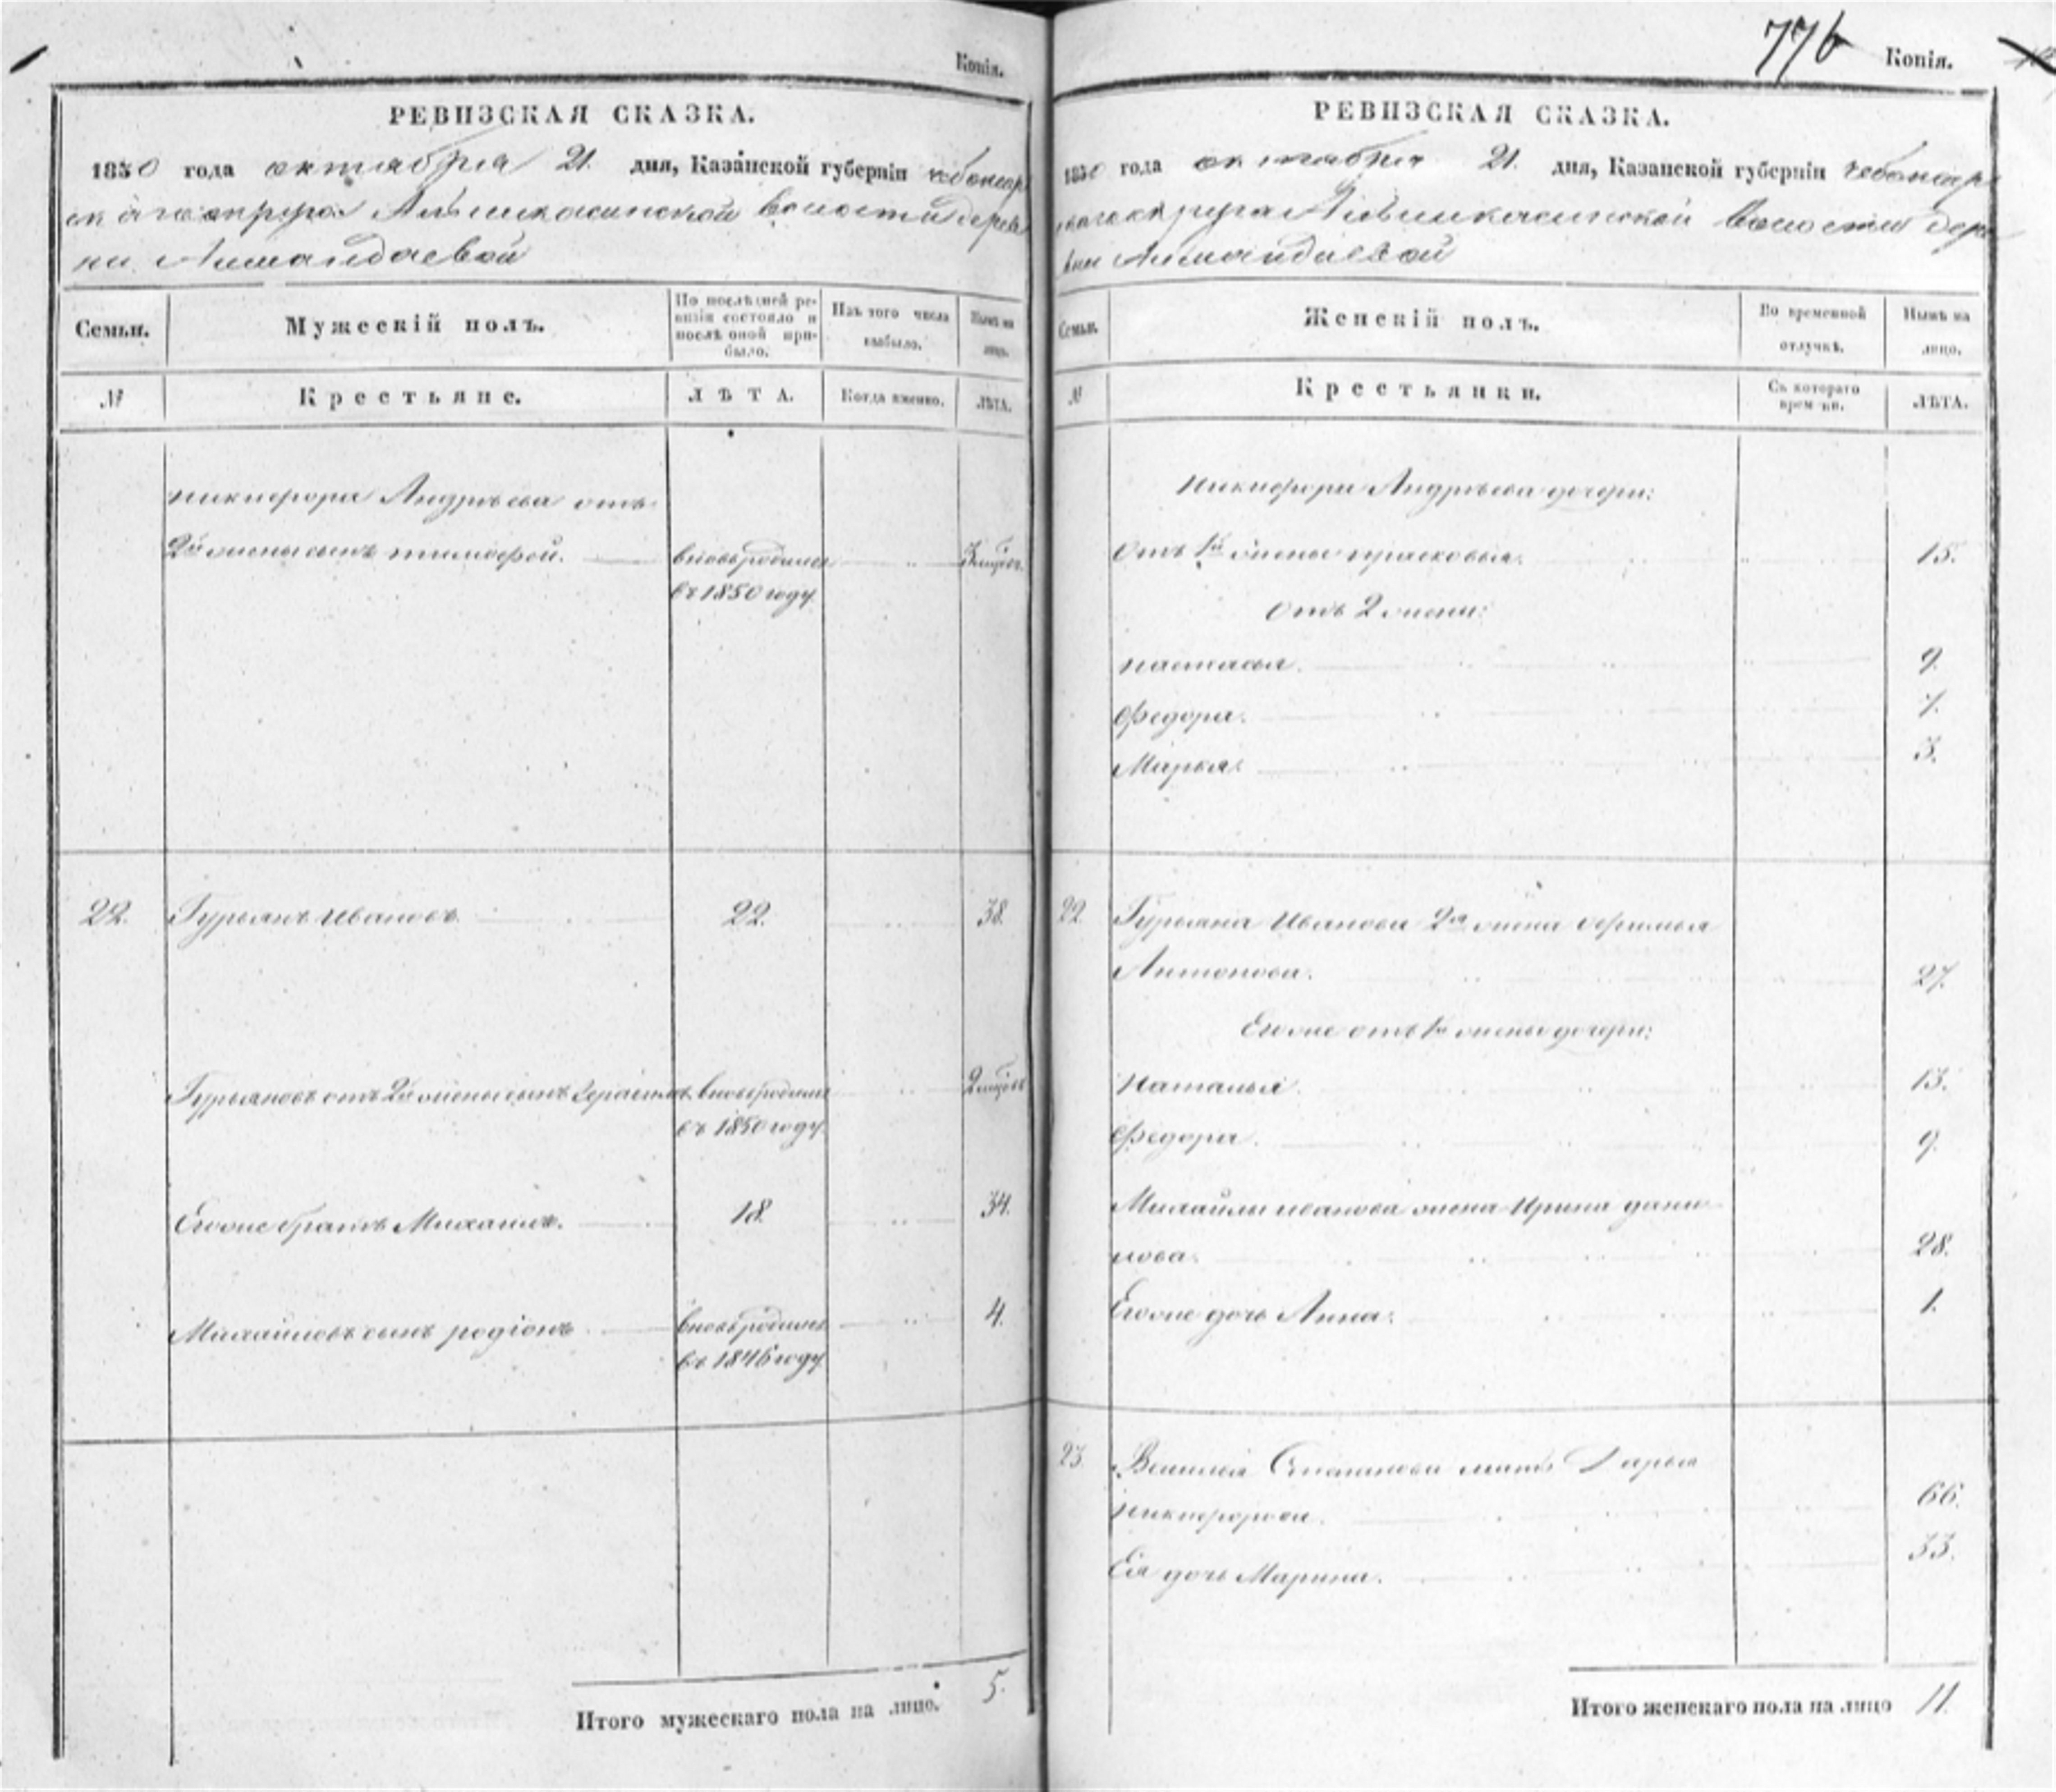 Копія.
РЕВИЗСКАЯ СКАЗКА.
1850 года октября 21. дня, Казанской губерніи чебоксар
скаго округа волости дерев
ни
Семьи.
Мужескій полъ.
По послѣдней ре-
визіи состояло и
послѣ оной при-
было.
Изъ того числа
выбыло.
Нынѣ на
лицо.
№
Крестьяне.
ЛѢТА.
Когда именно.
ЛѢТА.
никифора Андрѣева отъ
2й жены сынъ тимофей.
вновь родился
въ 1850 году.
3
22.
Гурьянъ Ивановъ
22.
38.
Гурьяновъ отъ 2й жены сынъ Герасимъ
вновь родился
въ 1850 году.
2
Егоже братъ Михаилъ.
18.
34.
Михайловъ сынъ родіонъ
вновь родился
въ 1846 году.
4.
Итого мужескаго пола на лицо.
5.
776
Копія.
РЕВИЗСКАЯ СКАЗКА.
1850 года октября 21. дня, Казанской губерніи чебоксар
скаго округа волости дере
вни
Семьи.
Женскій полъ.
Во временной
отлучкѣ.
Нынѣ на
лицо.
№
Крестьянки.
Съ котораго
времени.
ЛѢТА.
Никифора Андрѣева дочери:
Отъ 1й жены прасковья.
15.
Отъ 2 жены:
настасья.
9.
Федора.
7.
Марья.
3.
22.
Гурьяна Иванова 2я жена Афимья
Антонова.
27.
Егоже отъ 1й жены дочери:
Наталья.
13.
Федора.
9.
Михайлы иванова жена Ирина дани
лова.
28.
Егоже дочь Анна.
1.
23.
Василья Степанова мать Дарья
никифорова.
66.
Ея дочь Марина.
33.
Итого женскаго пола на лицо
11.